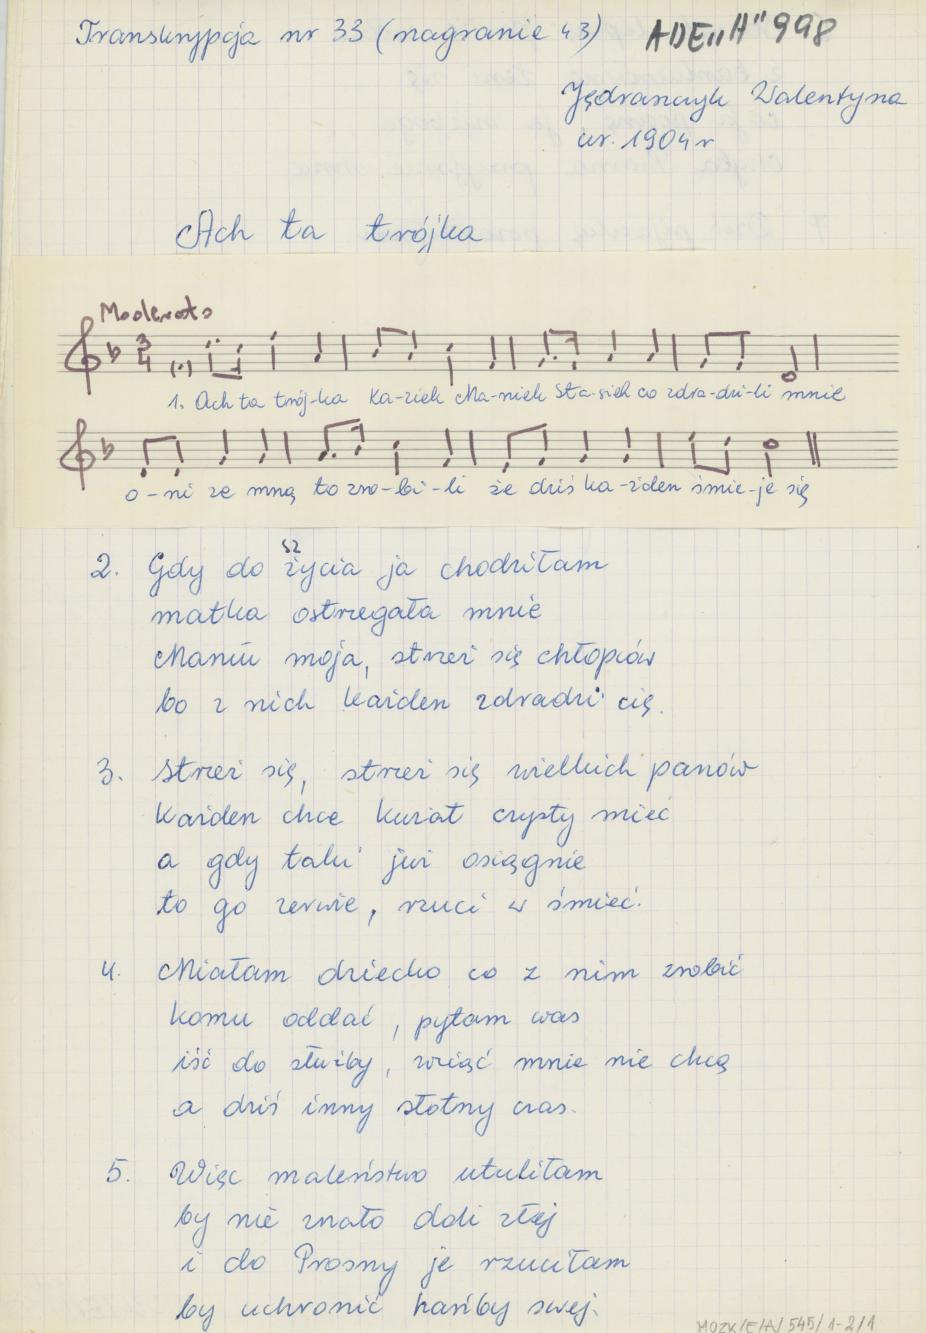 Transkrypcja nr 33 (nagranie 43) ADE „H” 998
Jędrasczyk Walentyna
ur. 1904 r
Ach ta trójka
Moderato
1. Ach ta trój-ka Ka-ziek Ma-niek Sta-siek co zdra-dzi-li mnie
o-ni ze mną to zro-bi-li że dziś ka-żden śmie-je się
sz
2. Gdy do życia ja chodziłam
matka ostrzegała mnie
Maniu moja, strzeż się chłopców
bo z nich każden zdradzi cię.
3. Strzeż się, strzeż się wielkich panów
Każden chce kwiat czysty mieć
a gdy taki już osiągnie
to go zerwie, rzuci w śmieć.
4. Miałam dziecko co z nim zrobić
komu oddać, pytam was
iść do służby, wziąść mnie nie chcą
a dziś inny słotny czas.
5. Więc maleństwo utuliłam
by nie znało doli złej
i do Prosny je rzuciłam
by uchronić hańby swej.
MOZK/E/A/545/1-2/1